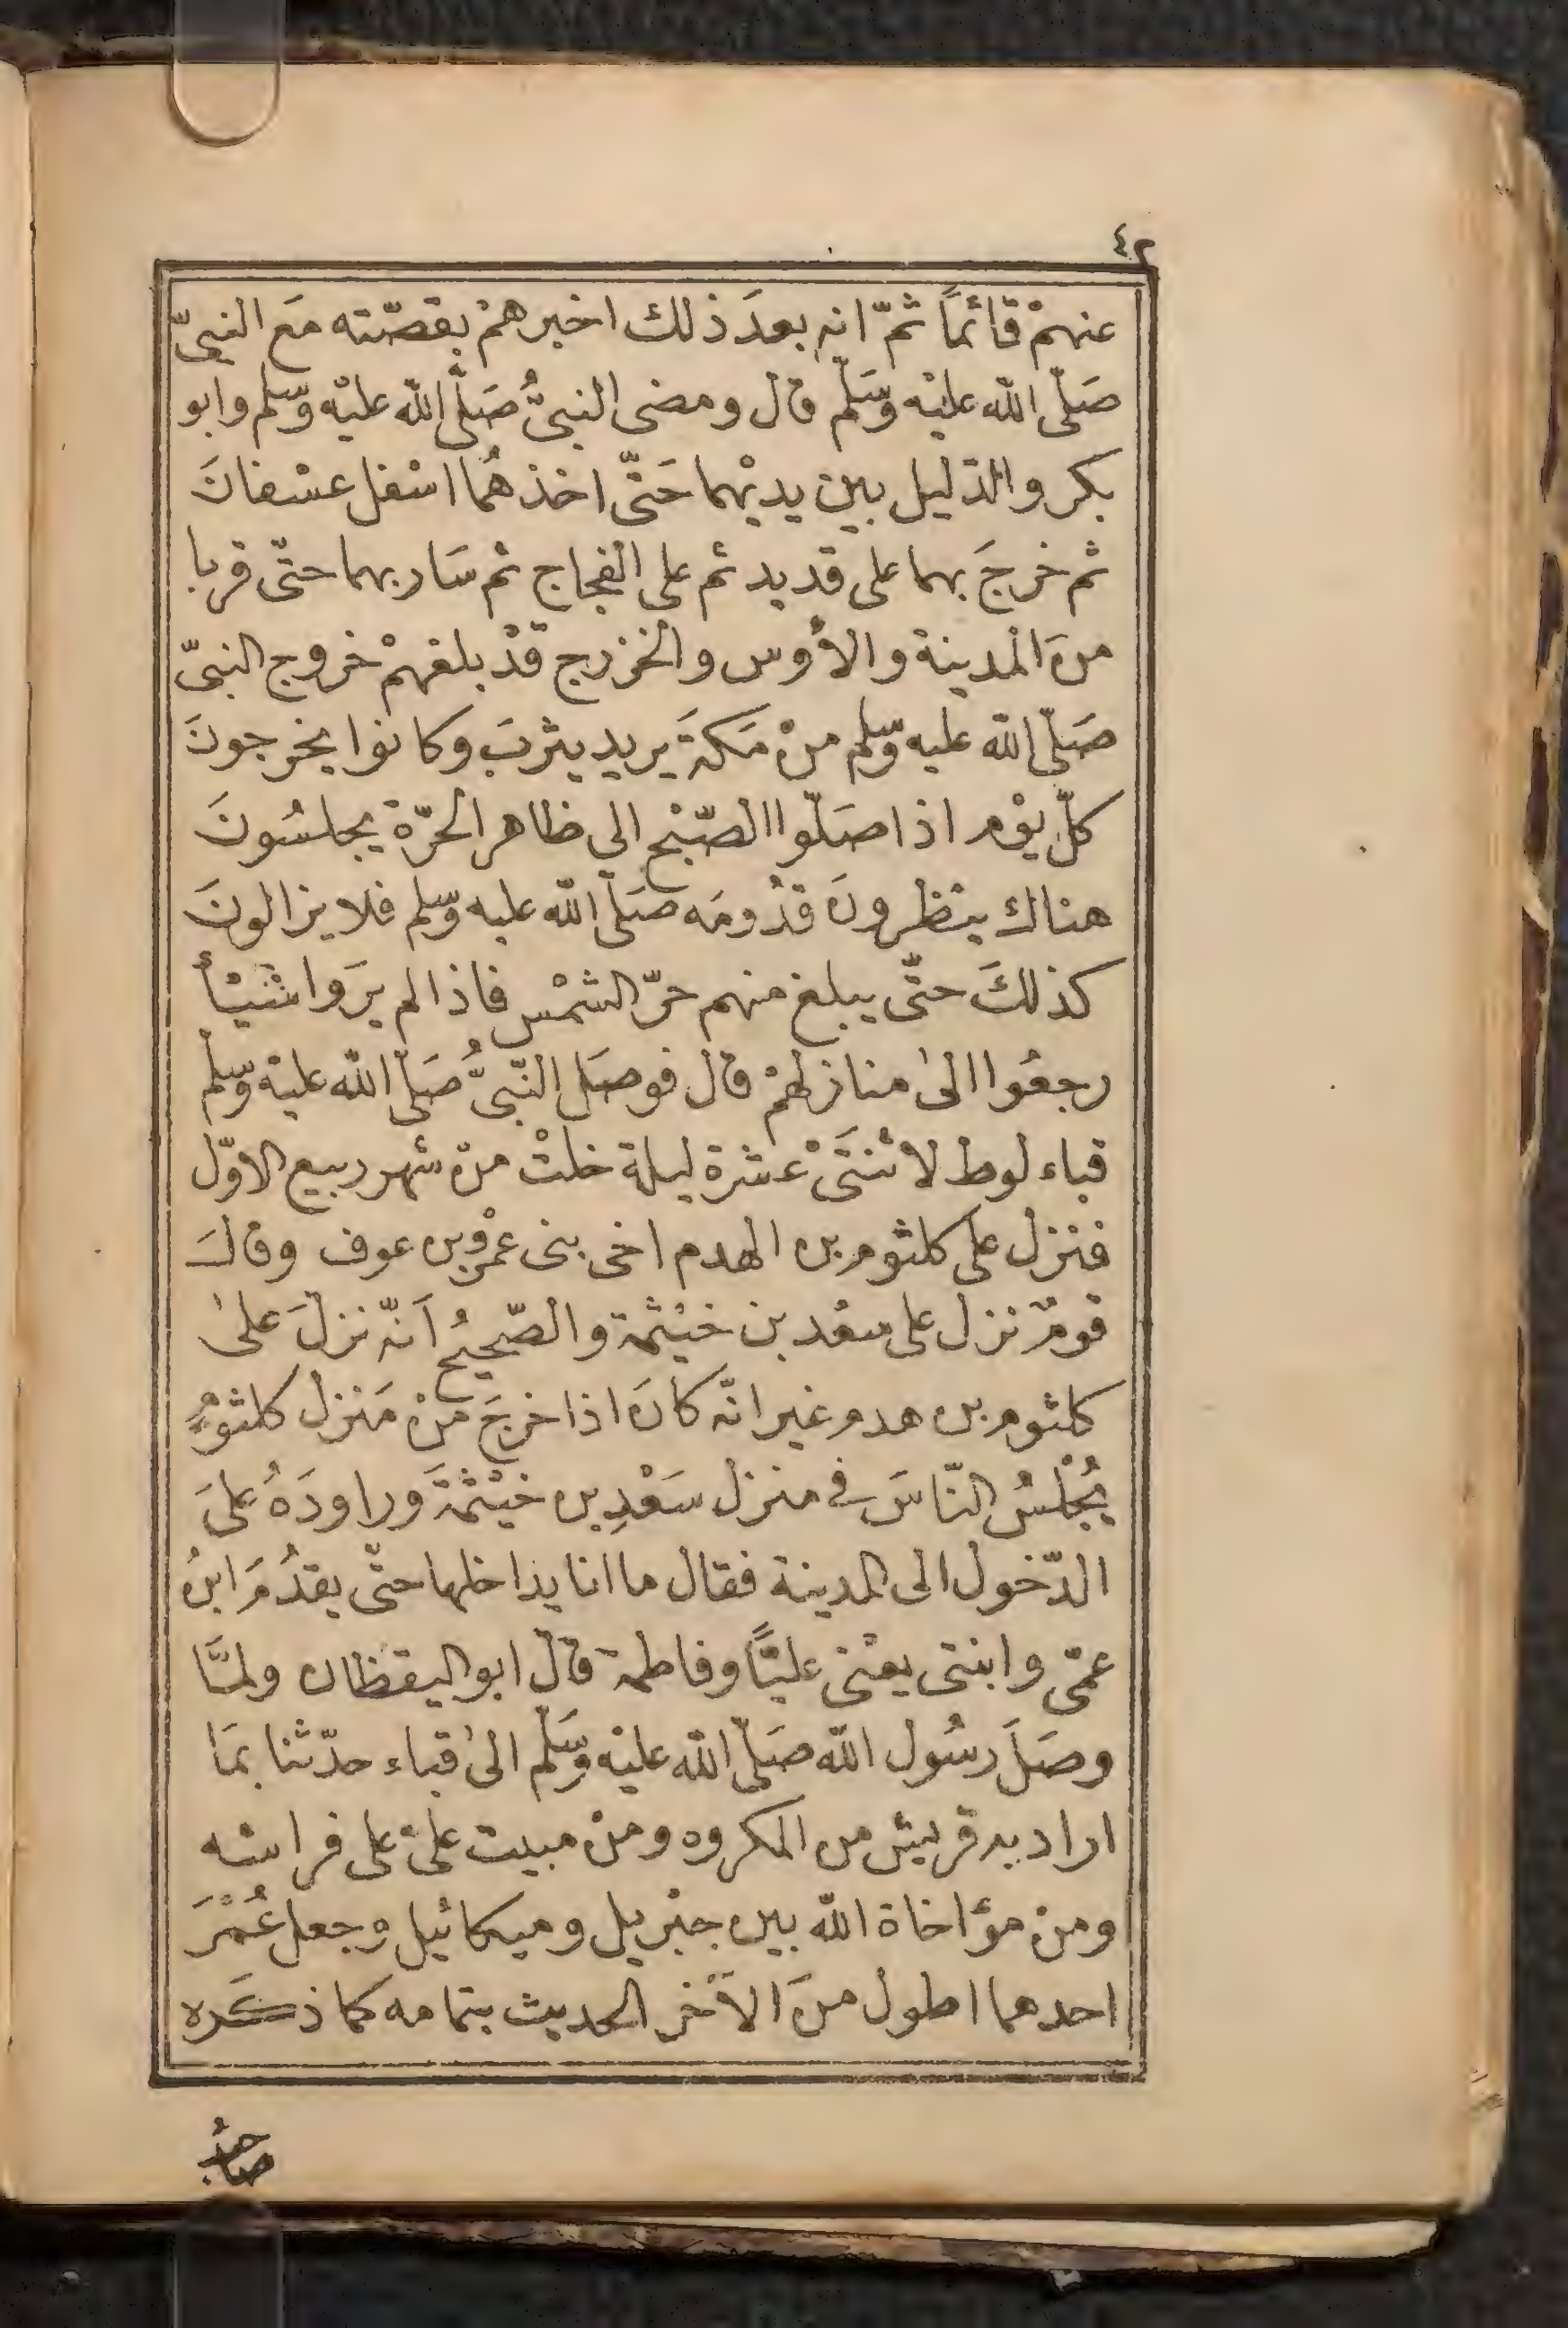 ٤٢
عنهمْ قائماً ثمّ انه بعدَ ذلك اخبرهمْ بقصّته مَع النبىّ
صَلّى الله عليْه وَسَلّم قال ومضى النبىُّ صَلَّى الله عليْه وَسّلم وابو
بكر والدّليل بين يديْهما حَتّى اخذ هُما اسْفل عسْفانَ
ثم خرجَ بهما على قديد ثم على الفجاج ثم سَار بهما حتّى قربا
منَ المْدينة والأوس والخزرج قدْ بلغهمْ خروج النبىّ
صَلّى الله عليه وسّلم منْ مَكةَ يريد يثربَ وكانوا يخرجونَ
كلّ يوْم اذا صَلّوا الصّبْح الى ظاهر الحرّة يجلسُونَ
هناك ينْظرونَ قدُومَه صَلّى الله عليه وسّلم فلا يزالونَ
كذلكَ حتّى يبلغ منهم حرّ الشمْس فاذا لم يرَوا شيْأً
رجعُوا الىٰ منازلهمْ قال فوصَل النّبىُّ صَلّى الله عليْه وسّلم
قباء لوط لاثنتَىْ عشرة ليلة خلتْ منْ شهر ربيع الاوّل
فنزل على كلثوم بن الهدم اخى بنى عمْرو بن عوف وقالَ
قومٌ نزل على سعْد بن خيْثمة والصّحيحُ اَنّه نزلَ علىٰ
كلثوم بن هدم غير انّه كانَ اذا خرجَ منْ مَنزل كلثومٍ
يُجْلسُ النّاسَ فى منزل سَعْدِ بن خيْثمَةَ وراودَهُ علىَ
الدّخول الى المدينة فقال ما انا بداخلها حتّى يقدُمَ ابنُ
عمّى وابنتى يعْنى عليّاً وفاطمة قالَ ابو اليقظان ولمَّا
وصَلَ رسُول الله صَلّى الله عليْه وَسَلّم الىٰ قباء حدّثنا بمَا
اراد به قريش من المكروه ومنْ مبيت علىّ على فراشه
ومنْ مؤاخاة الله بين جبْريل وميكائيل وجعل عُمْرَ
احدهما اطول منَ الآخر الحديث بتمامه كما ذكَره
صاحبُ